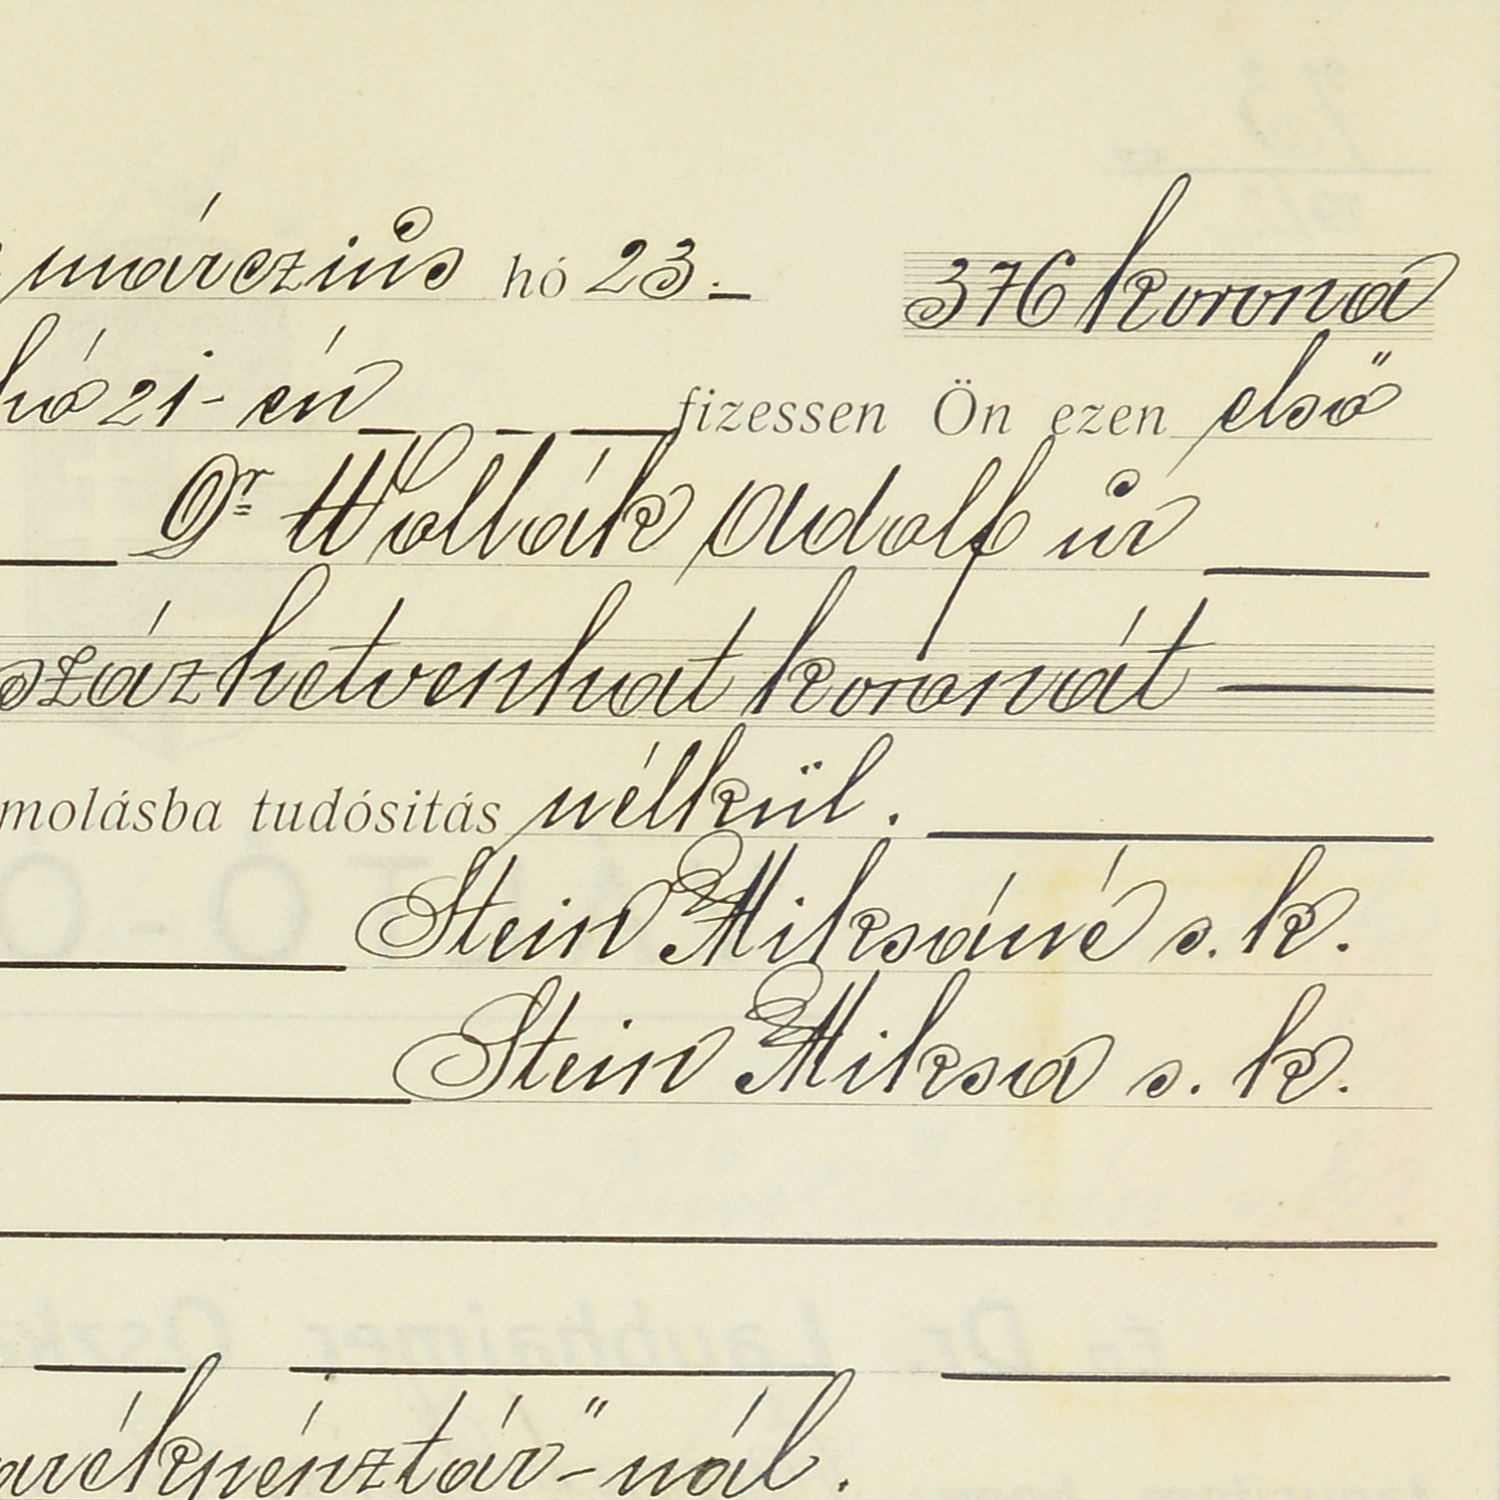 márczius hó 23.- 376 korona
hó 21-én fizessen Ön ezen első
Dr Wollák Adolf úr
százhetvenhat koronát
molásba tudósitás nélkül.
Stein Miksáné s. k.
Stein Miksa s. k.
arékpénztár"-nál.